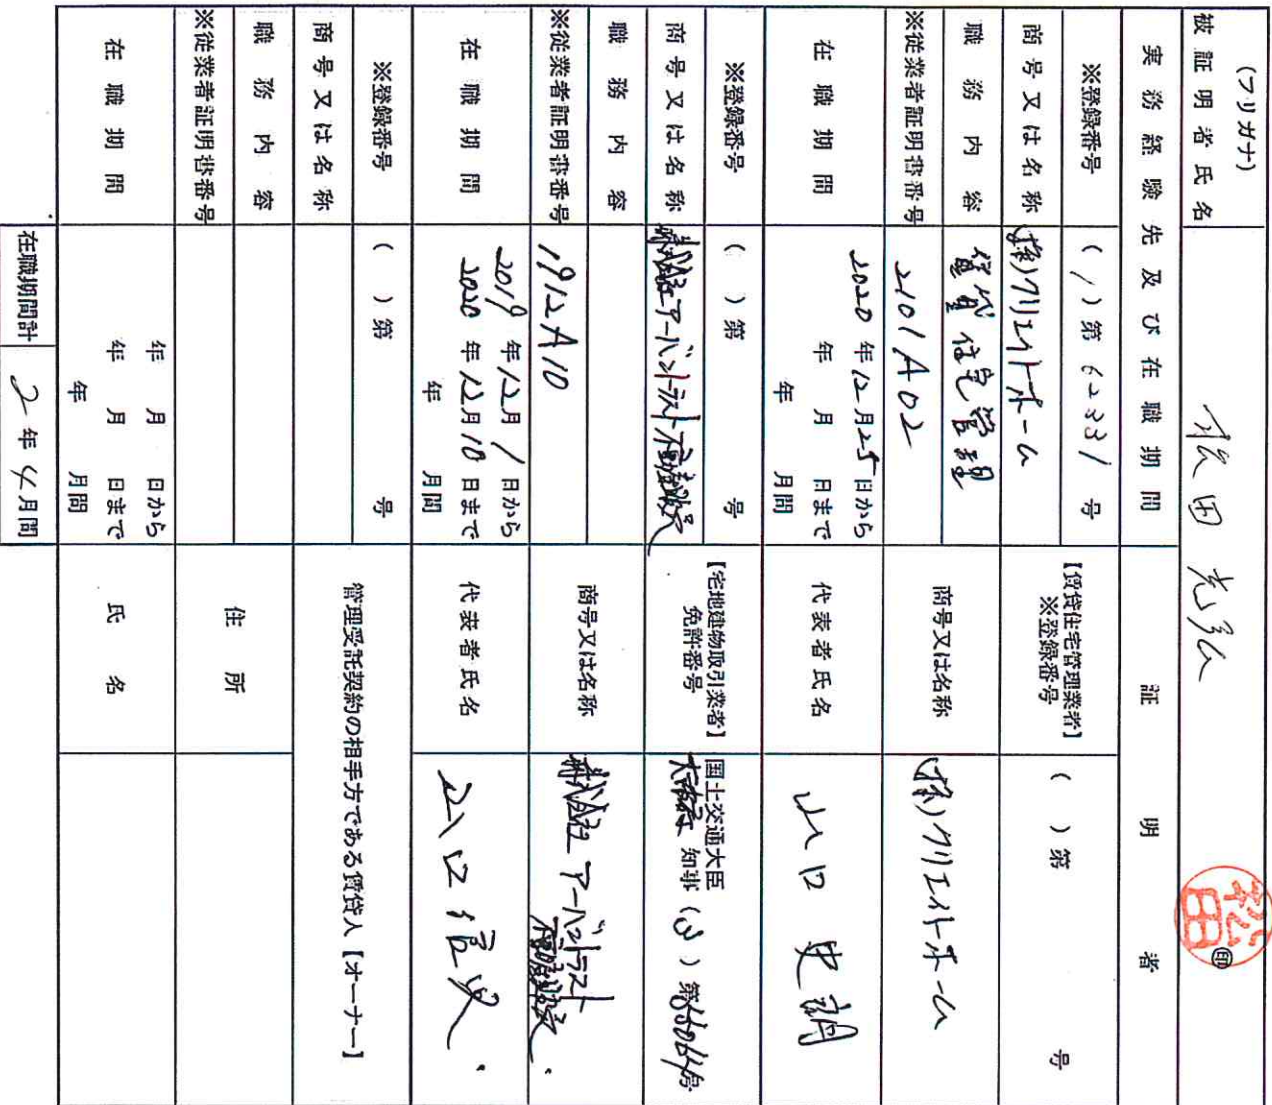 (フリガナ)
被証明者氏名 松田 光弘 ㊞
松田
実務経験先及び在職期間
証明者
※登録番号 (1)第 62331 号
商号又は名称 (株)クリエイトホーム
職務内容 賃貸住宅管理
※従業者証明書番号 2101A02
在職期間 2020年12月25日から
年 月 日まで
年 月間
【賃貸住宅管理業者】
※登録番号 ( )第 号
商号又は名称 (株)クリエイトホーム
代表者氏名 山口 史朗
※登録番号 ( )第 号
商号又は名称 株式会社アーバントラスト不動産販売
職務内容
※従業者証明書番号 1912A10
在職期間 2019年12月1日から
2020年12月10日まで
年 月間
【宅地建物取引業者】
免許番号 国土交通大臣
大阪府 知事(3)第 号
商号又は名称 株式会社アーバントラスト
不動産販売
代表者氏名
※登録番号 ( )第 号
商号又は名称
職務内容
※従業者証明書番号
在職期間 年 月 日から
年 月 日まで
年 月間
管理受託契約の相手方である賃貸人【オーナー】
住所
氏名
在職期間計 2年4月間